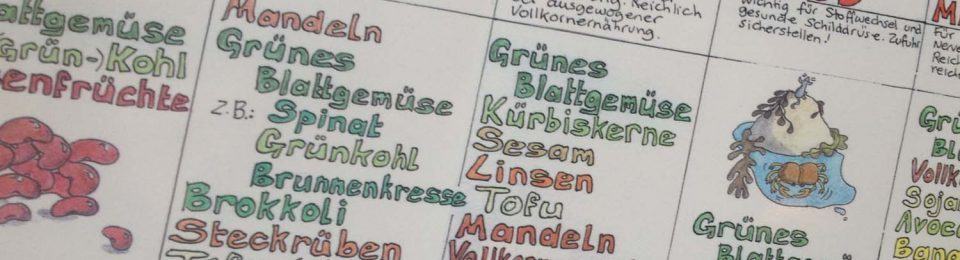 attgemüse
(Grün-)Kohl
enfrüchte
Mandeln
Grünes
Blattgemüse
z.B.: Spinat
Grünkohl
Brunnenkresse
Brokkoli
Steckrüben
Reichlich
ausgewogener
Vollkornernährung.
Grünes
Blattgemüse
Kürbiskerne
Sesam
Linsen
Tofu
Mandeln
wichtig für Stoffwechsel und
gesunde Schilddrüse. Zufuhr
sicherstellen!
Grünes
Blattgemüse
für
Nerve
Reich
reich
Grü
Bl
Vollk
Soja
Avoc
Bana